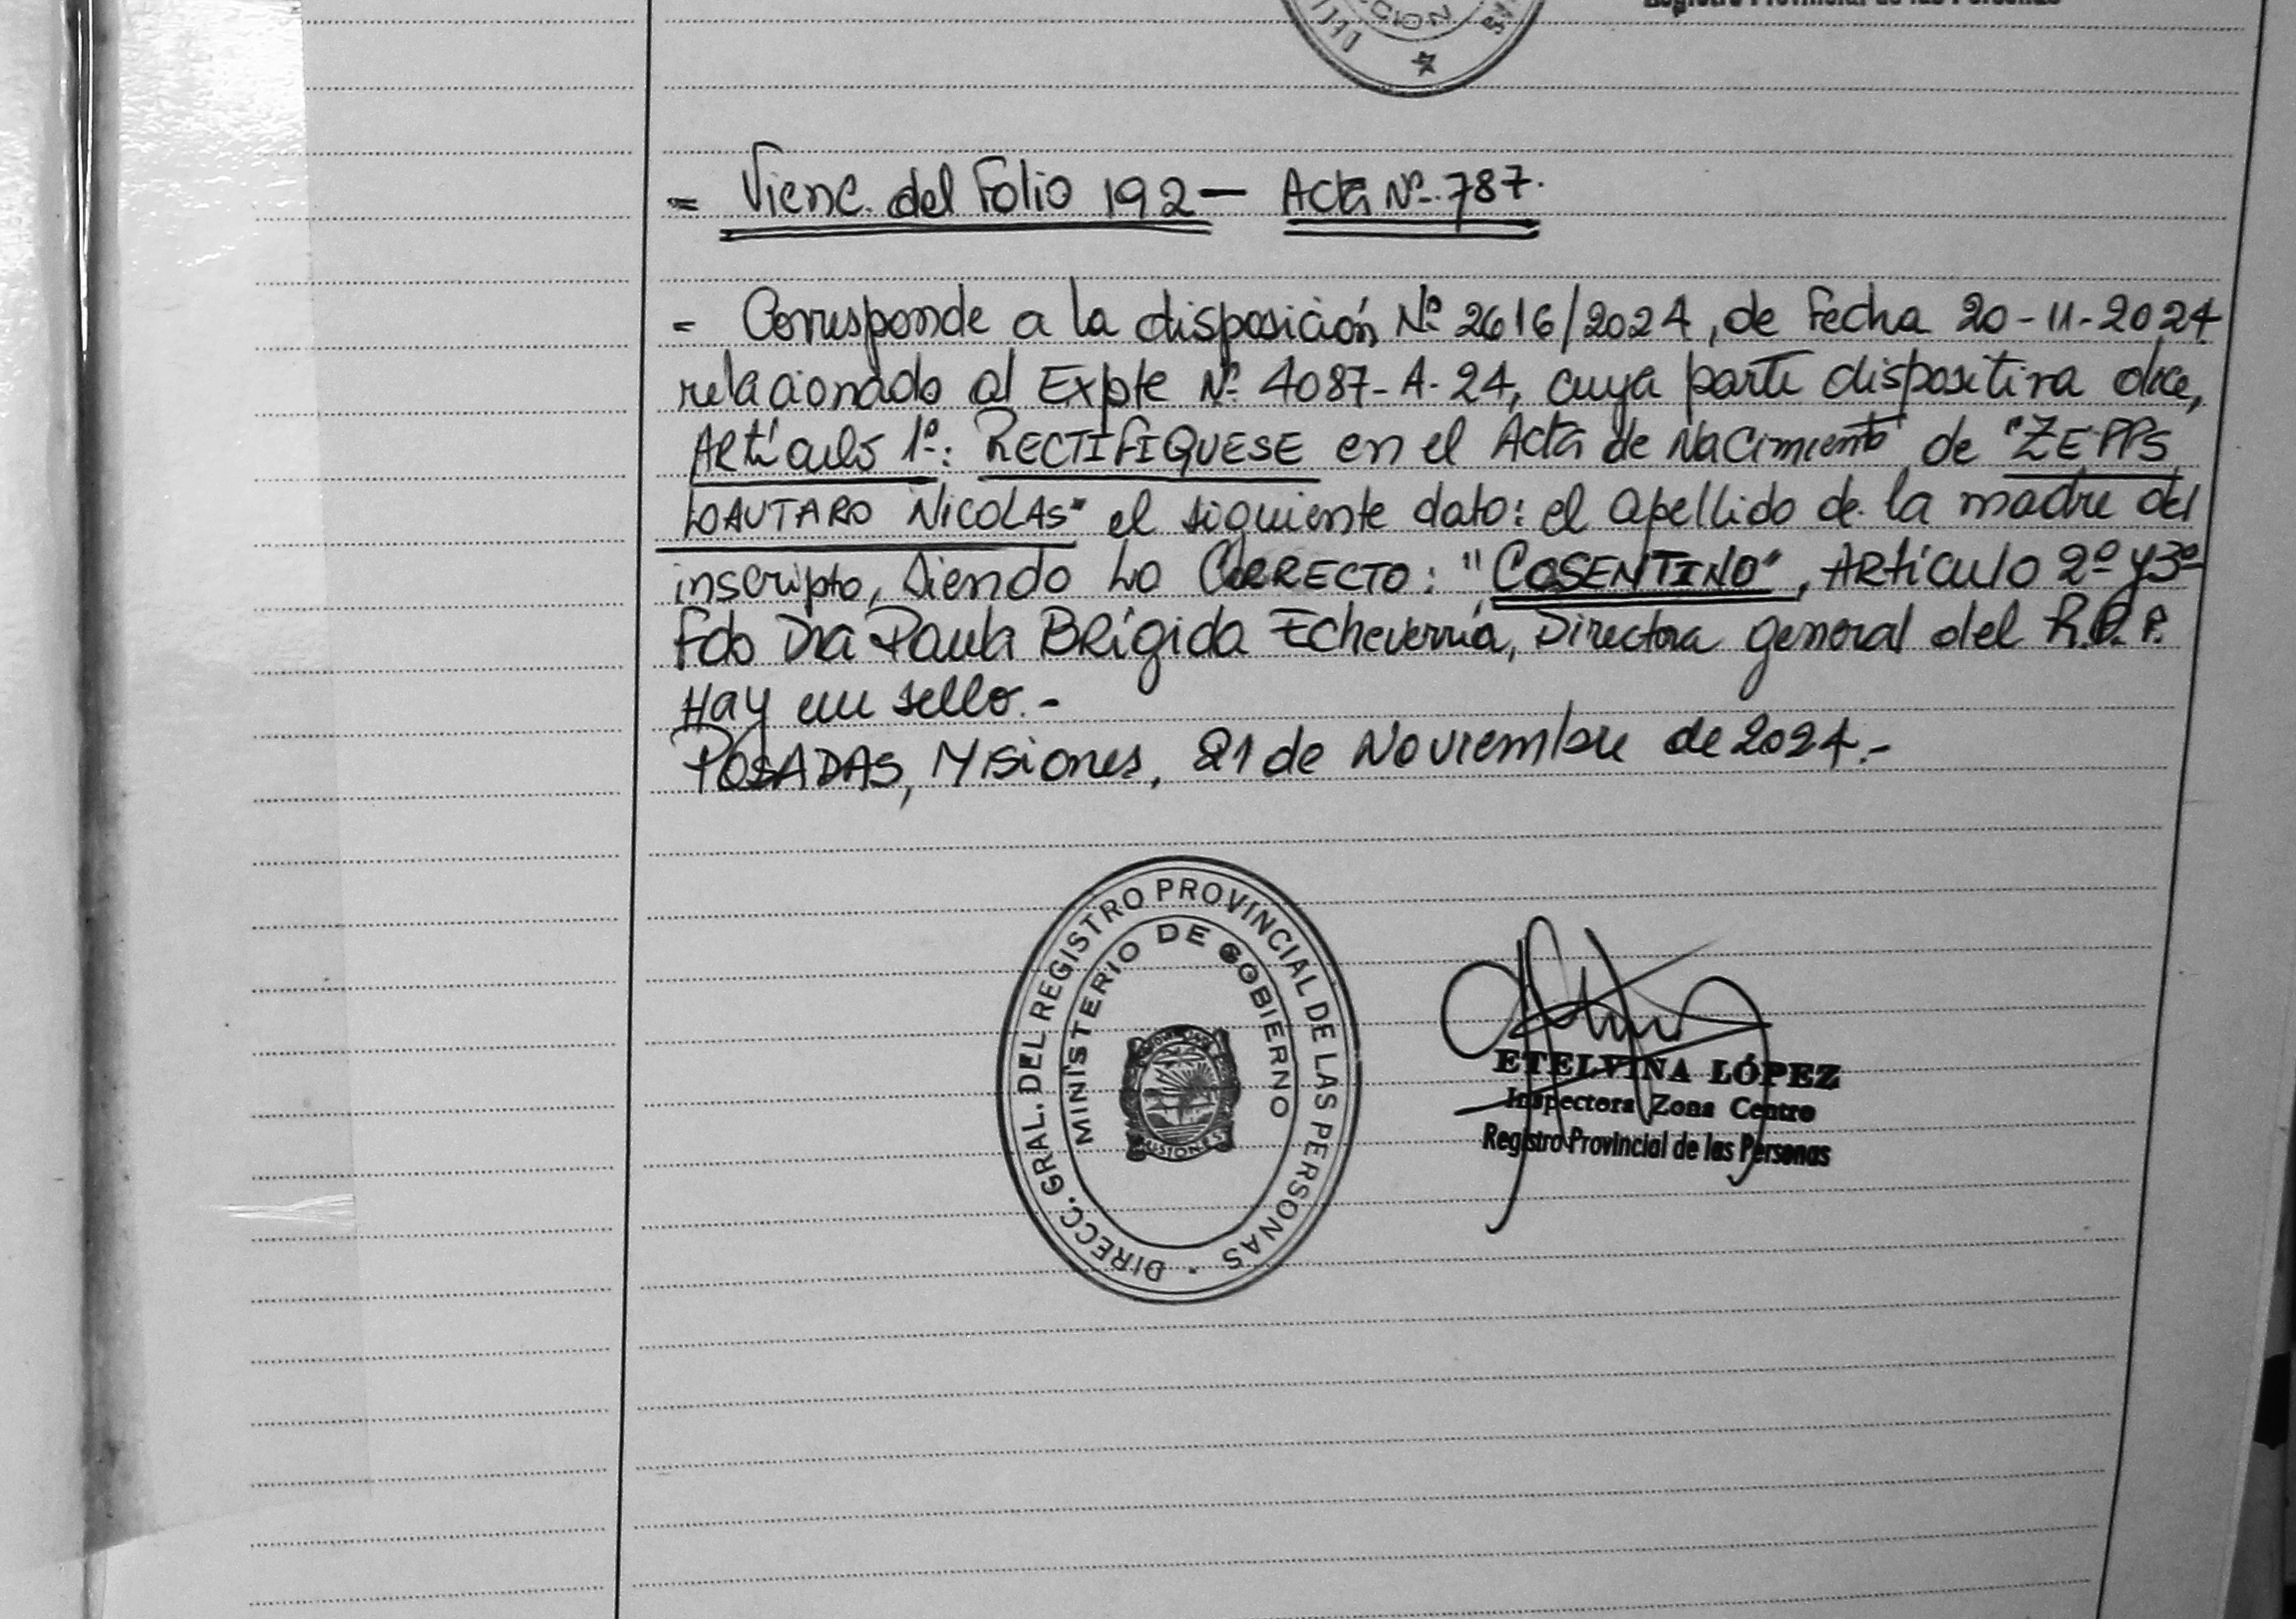 CION
Registro Provincial de las Personas
= Viene. del Folio 192 — Acta Nº 787.
- Corresponde a la disposición Nº 2616/2024, de Fecha 20-11-2024
relacionado al Expte Nº 4087-A-24, cuya parte dispositiva dice,
Artículo 1º: RECTIFIQUESE en el Acta de Nacimiento de "ZEPPS
LOAUTARO NICOLAS" el siguiente dato: el apellido de la madre del
inscripto, siendo Lo CORRECTO: "COSENTINO", Artículo 2º y 3º
Fdo Dra Paula Brígida Echeverría, Directora general del R.P.P.
Hay un sello.-
POSADAS, Misiones, 21 de Noviembre de 2024.-
DIRECC. GRAL. DEL REGISTRO PROVINCIAL DE LAS PERSONAS
MINISTERIO DE GOBIERNO
MISIONES
ETELVINA LÓPEZ
Inspectora Zona Centro
Registro Provincial de las Personas